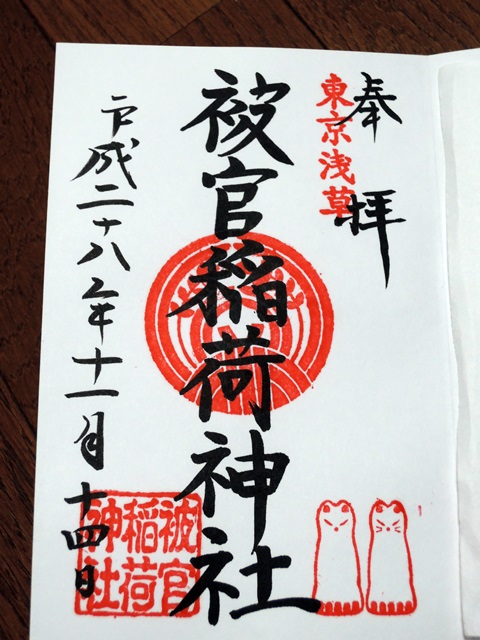 奉拝
東京浅草
被官稲荷神社
平成二十八年十一月十四日
被官
稲荷
神社